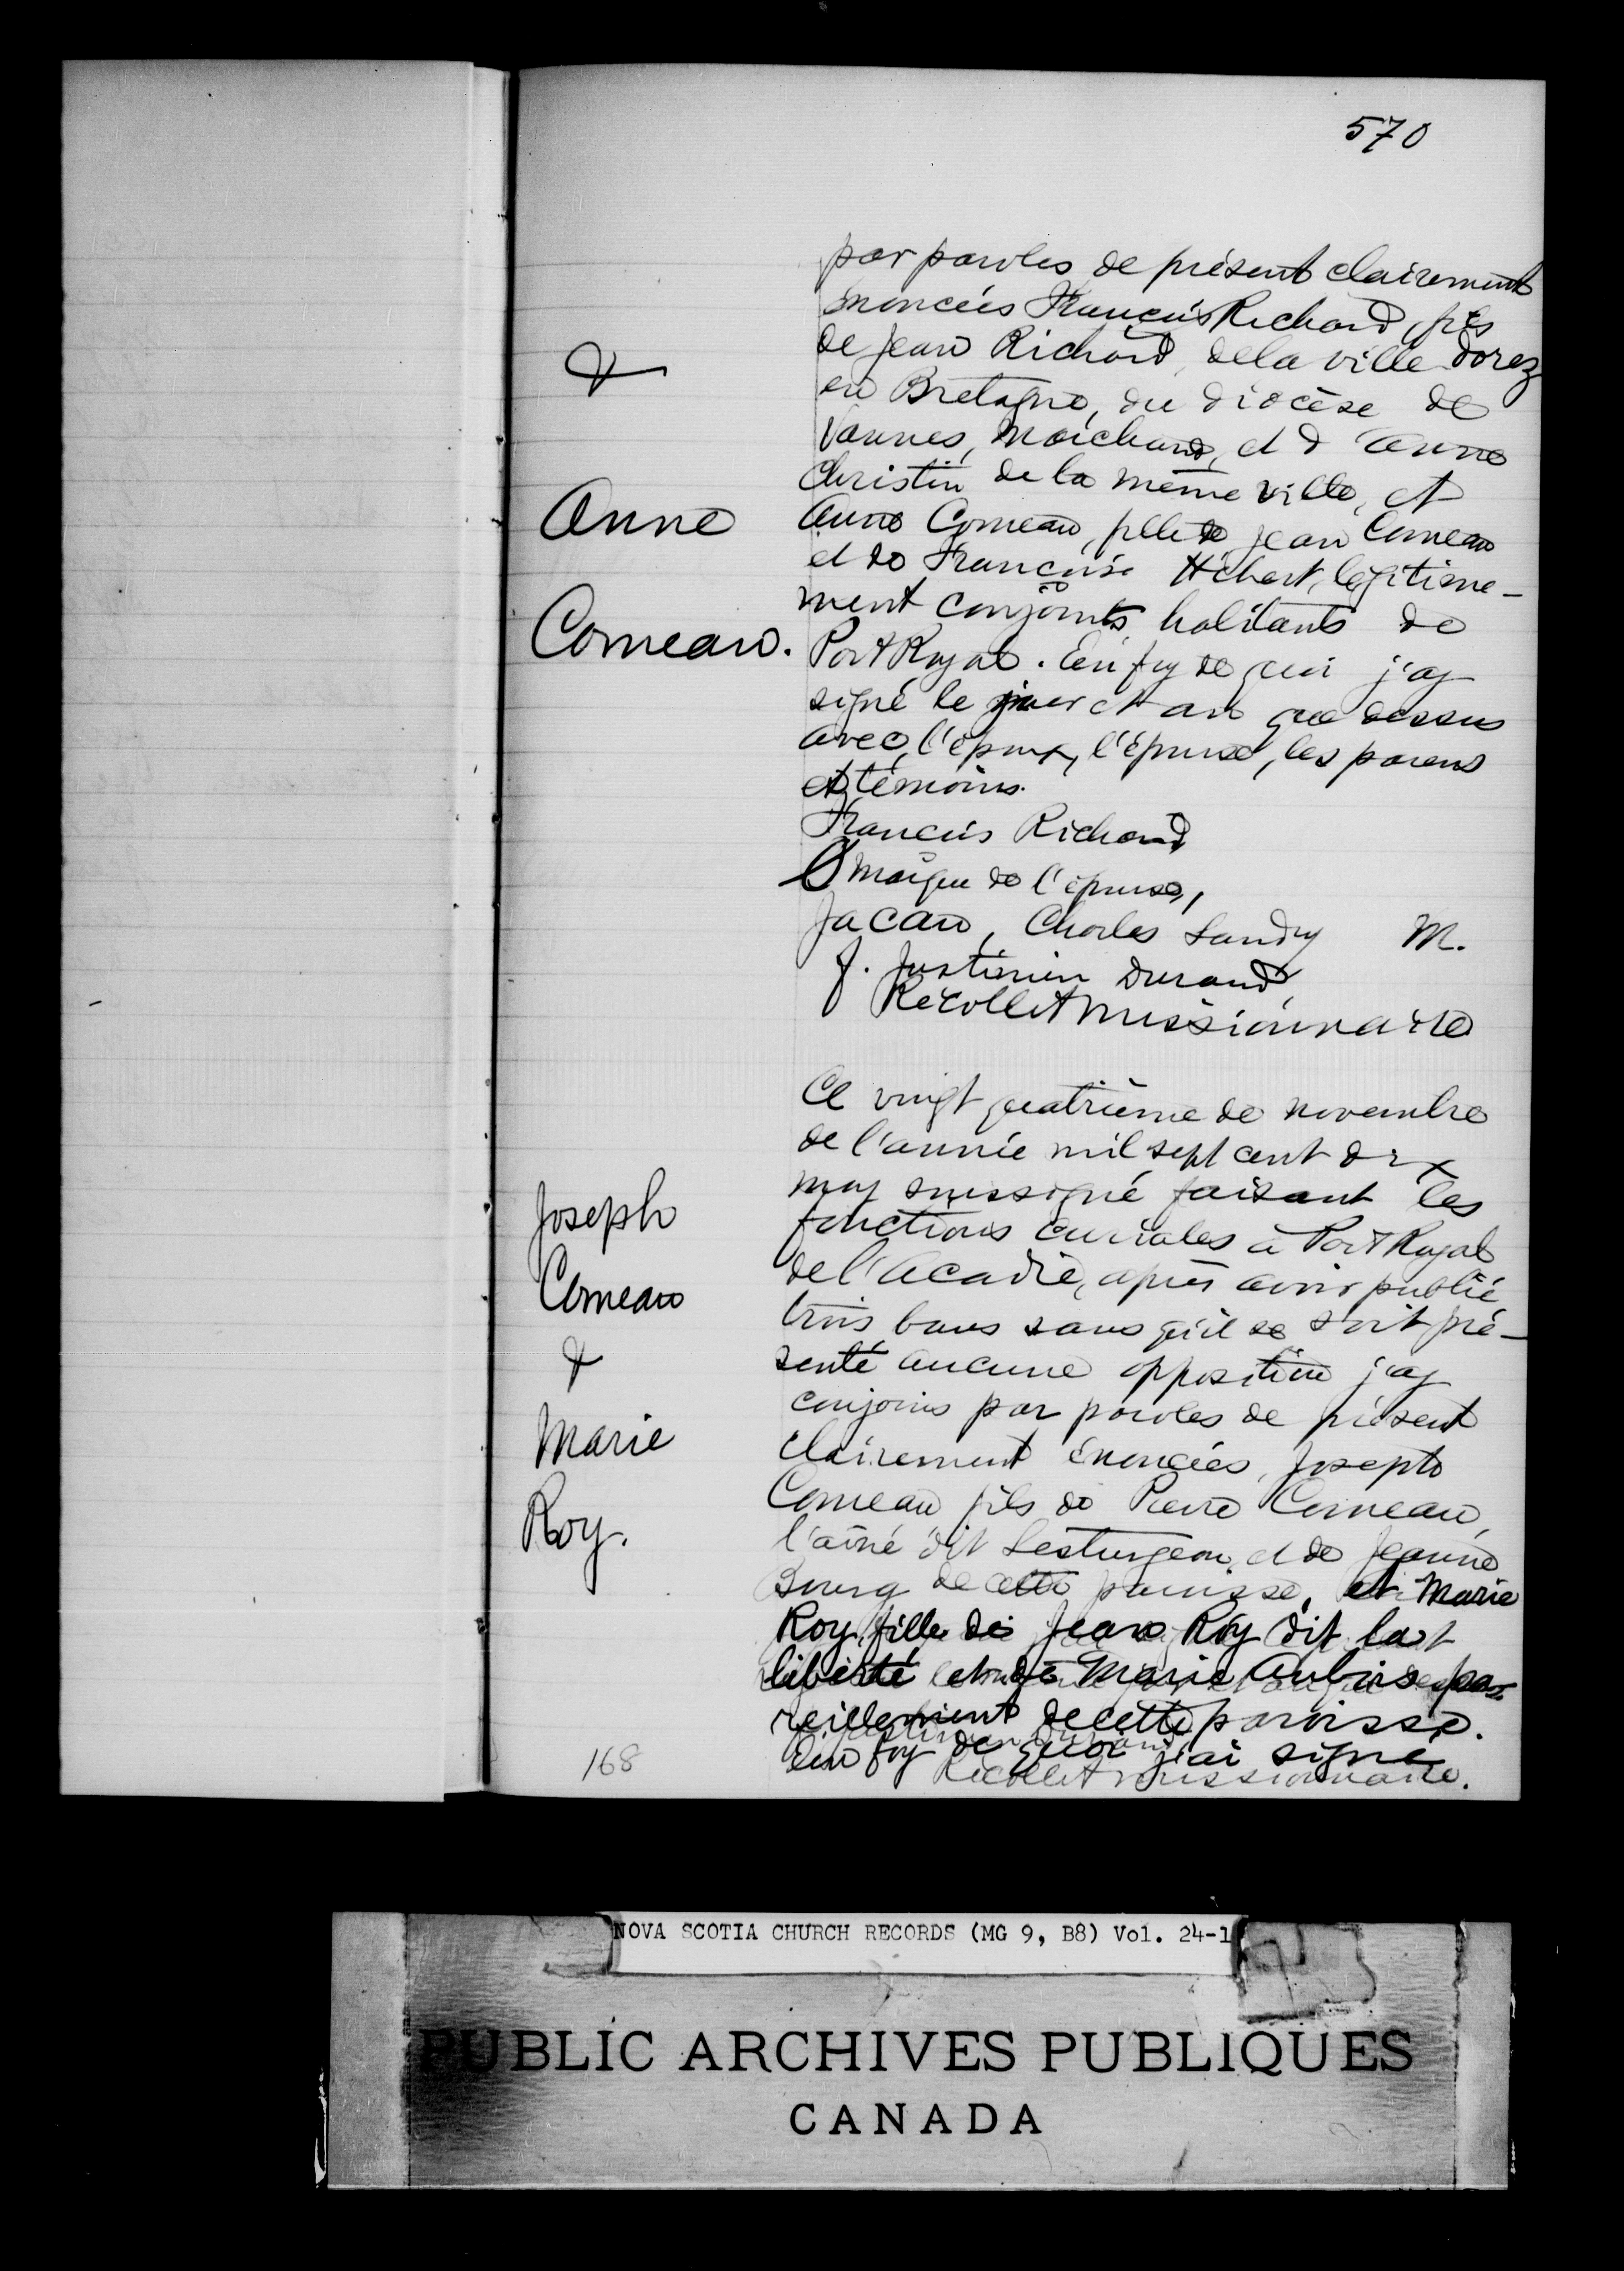 570
par paroles de présent clairement
énoncées François Richard, fils
de Jean Richard, de la ville dorez
en Bretagne, du diocèse de
Vannes, marchand, et d'Anne
Christin de la même ville, et
Anne Comeau, fille de Jean Comeau
et de Françoise Hébert, légitime-
ment conjoints habitants de
Port Royal. En foy de quoi j'ay
signé le jour et an que dessus
avec l'époux, l'épouse, les parens
et témoins.
François Richard
marque de l'épouse,
Jacau, Charles Landry M.
f. Justinien Durand,
Récollet missionnaire
&
Anne
Comeau.
Ce vingt quatrième de novembre
de l'année mil sept cent dix
moy soussigné faisant les
fonctions curiales à Port Royal
de l'Acadie, après avoir publié
trois bans sans qu'il se soit pré-
senté aucune opposition j'ay
conjoins par paroles de présent
clairement énoncées, Joseph
Comeau fils de Pierre Comeau,
l'aîné dit Lesturgeon, et de Jeanne
Bourg de cette paroisse, et Marie
Roy, fille de Jean Roy dit la
liberté et de Marie Aubois, pa-
reillement de cette paroisse.
En foy de quoi j'ai signé
Récollet missionnaire.
Joseph
Comeau
&
Marie
Roy.
168
NOVA SCOTIA CHURCH RECORDS (MG 9, B8) Vol. 24-1
PUBLIC ARCHIVES PUBLIQUES
CANADA